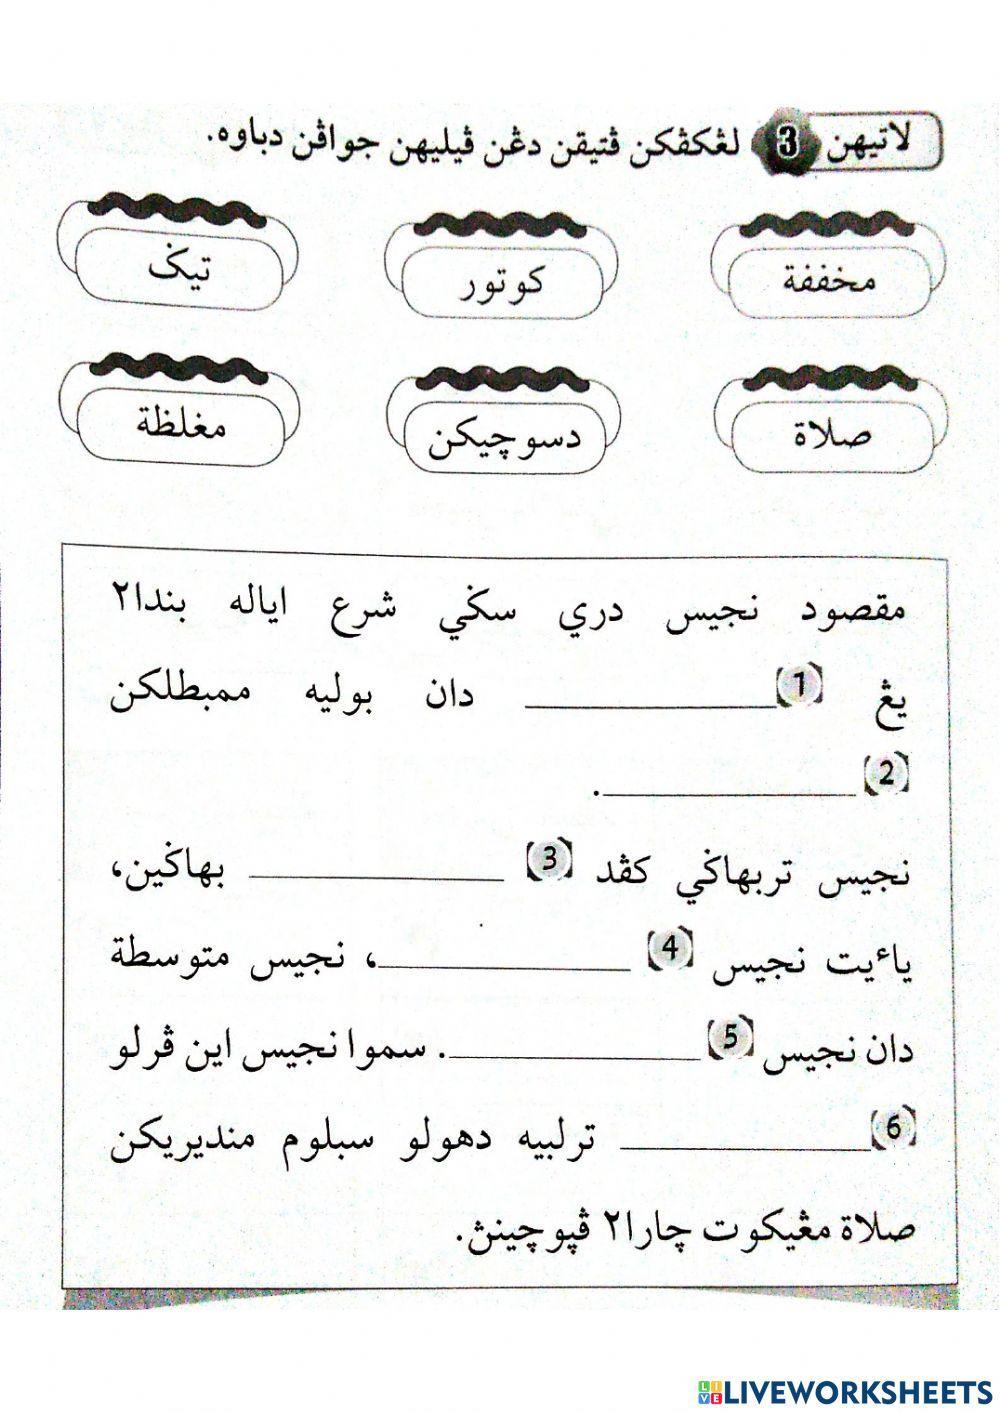 لاتيهن 3 لڠكڤكن ڤتيقن دڠن ڤيليهن جواڤن دباوه.
مخففة كوتور تيݢ
صلاة دسوچيكن مغلظة
مقصود نجيس دري سݢي شرع اياله بندا٢
يڠ (1) ____________ دان بوليه ممبطلكن
(2) ____________.
نجيس تربهاݢي كڤد (3) ____________ بهاݢين،
ياءيت نجيس (4) ____________، نجيس متوسطة
دان نجيس (5) ____________. سموا نجيس اين ڤرلو
(6) ____________ ترلبيه دهولو سبلوم منديريكن
صلاة مڠيكوت چارا٢ ڤڽوچينڽ.
LIVEWORKSHEETS